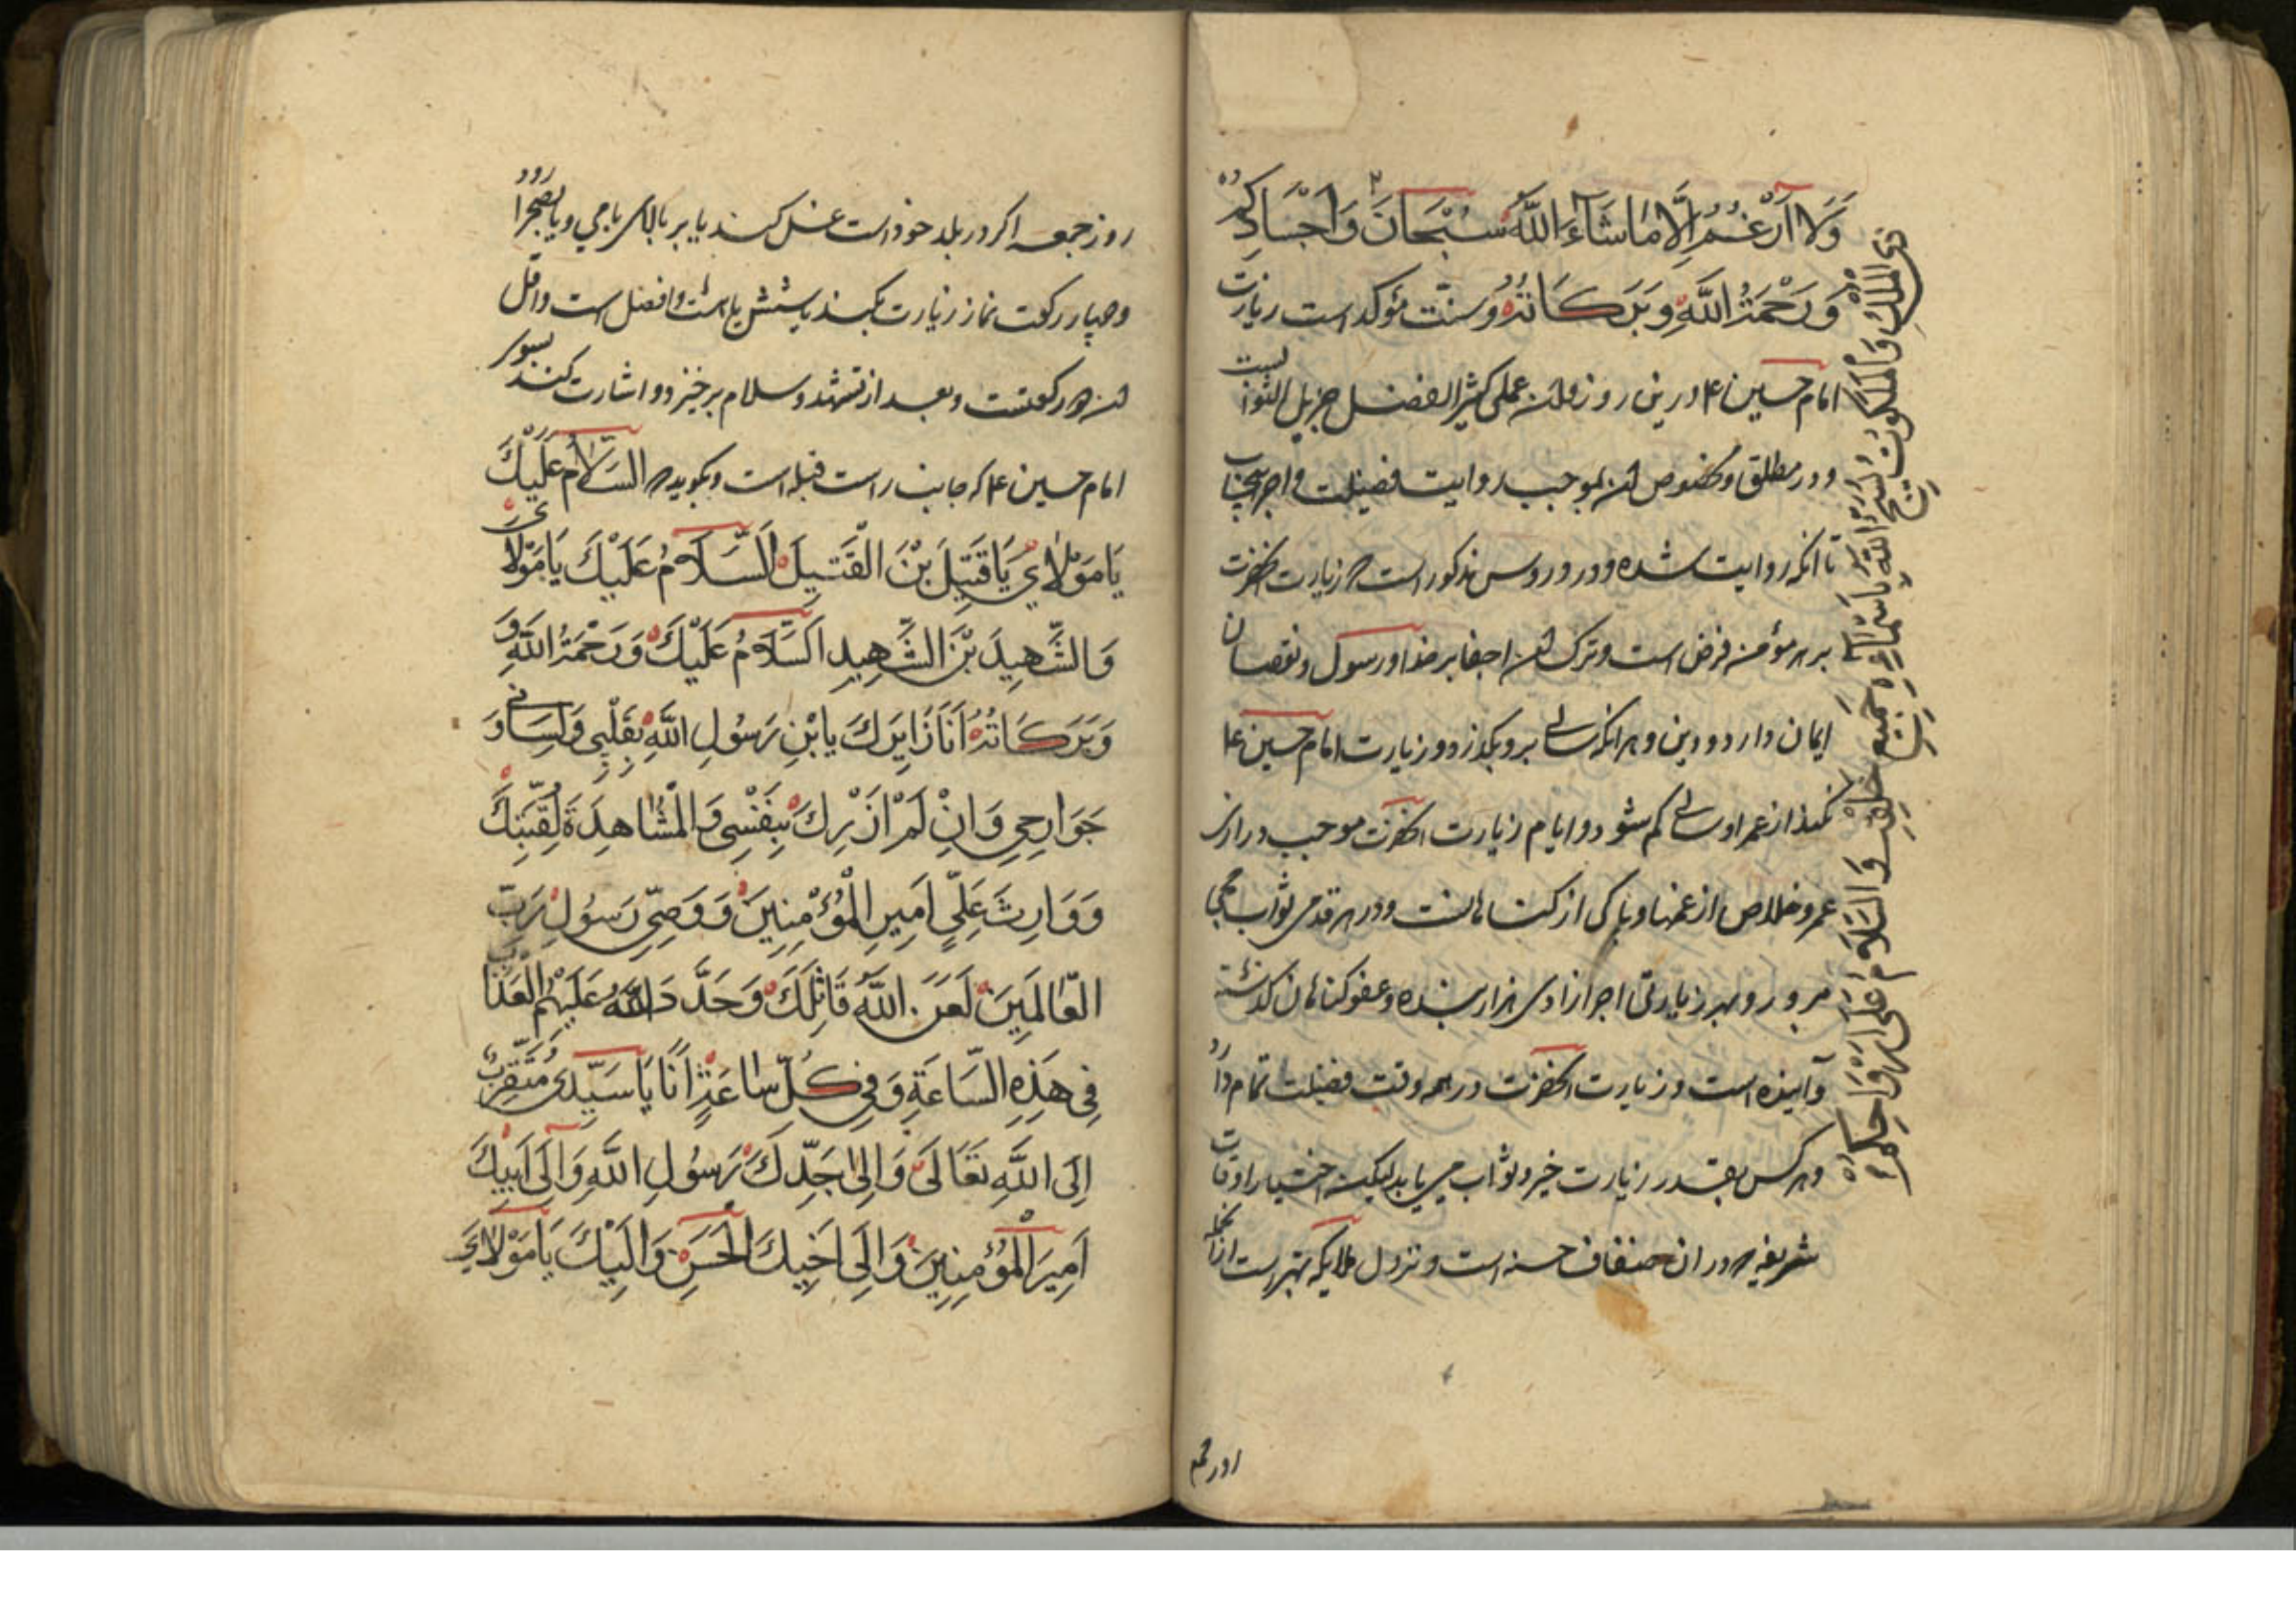 وَلَا اَزْعُمُ اِلَّا مَا شَآءَ اللهُ سُبْحَانَ وَاَجْسَادِكُمْ
وَرَحْمَةُ اللهِ وَبَرَكَاتُهُ وسنّت مؤکد است زیارت
امام حسین ع درین روز وان عملی کثیر الفضل جزیل الثواب
ودر مطلق و مخصوص ان بموجب روایت فضیلت و اجر
تا انکه روایت شده ودر دروس مذکور است که زیارت انحضرت
بر هر مؤمنه فرض است وترک ان جفا بر خدا ورسول ونقصان
ایمان دارد ودین وهر انکه سالی برو بکذرد وزیارت امام حسین ع
نکند از عمر او سالی کم شود وایام زیارت انحضرت موجب درازی
عمر وخلاص از غمها وپاکی از کناهانست ودر هر قدمی ثواب حجی
مبرور وبهر زیارتی اجر ازادی هزار بنده وعفو کناهان کذشته
وآینده است وزیارت انحضرت در همه وقت فضیلت تمام دارد
وهر کس بقدر زیارت خیر وثواب می یابد لیکن اختیار اوقات
شریفه که در ان حسنه است ونزول ملایکه بهتر است
ذِي الْمُلْكِ وَالْمَلَكُوتِ يُسَبِّحُ اللهَ بِاَسْمَائِهِ جَمِيعُ خَلْقِهِ وَالسَّلَامُ عَلَى اَرْوَاحِكُمْ
روز جمعه
روز جمعه اکر در بلد خود است غسل کند یا بر بالای بامی ویا بصحرا رود
وچهار رکعت نماز زیارت بکند یا شش یا هشت وافضل است واقل
ان دو رکعتست وبعد از تشهد وسلام برخیزد واشارت کند بسوی
امام حسین ع که جانب راست قبله است وبکوید که السَّلَامُ عَلَيْكَ
يَا مَوْلَايَ يَا قَتِيلَ بْنَ الْقَتِيلِ اَلسَّلَامُ عَلَيْكَ يَا مَوْلَايَ
وَالشَّهِيدَ بْنَ الشَّهِيدِ اَلسَّلَامُ عَلَيْكَ وَرَحْمَةُ اللهِ وَ
وَبَرَكَاتُهُ اَنَا زَايِرُكَ يَا بْنَ رَسُولِ اللهِ بِقَلْبِي وَلِسَانِي وَ
جَوَارِحِي وَاِنْ لَمْ اَزُرْكَ بِنَفْسِي وَالْمُشَاهِدَةَ لِقُبَّتِكَ
وَوَارِثَ عَلِيٍّ اَمِيرِ الْمُؤْمِنِينَ وَوَصِيِّ رَسُولِ رَبِّ
الْعَالَمِينَ لَعَنَ اللهُ قَاتِلَكَ وَجَدَّدَ اللهُ عَلَيْهِمُ الْعَذَابَ
فِي هَذِهِ السَّاعَةِ وَفِي كُلِّ سَاعَةٍ اَنَا يَا سَيِّدِي مُتَقَرِّبٌ
اِلَى اللهِ تَعَالَى وَاِلَى جَدِّكَ رَسُولِ اللهِ وَاِلَى اَبِيكَ
اَمِيرِ الْمُؤْمِنِينَ وَاِلَى اَخِيكَ الْحَسَنِ وَاِلَيْكَ يَا مَوْلَايَ